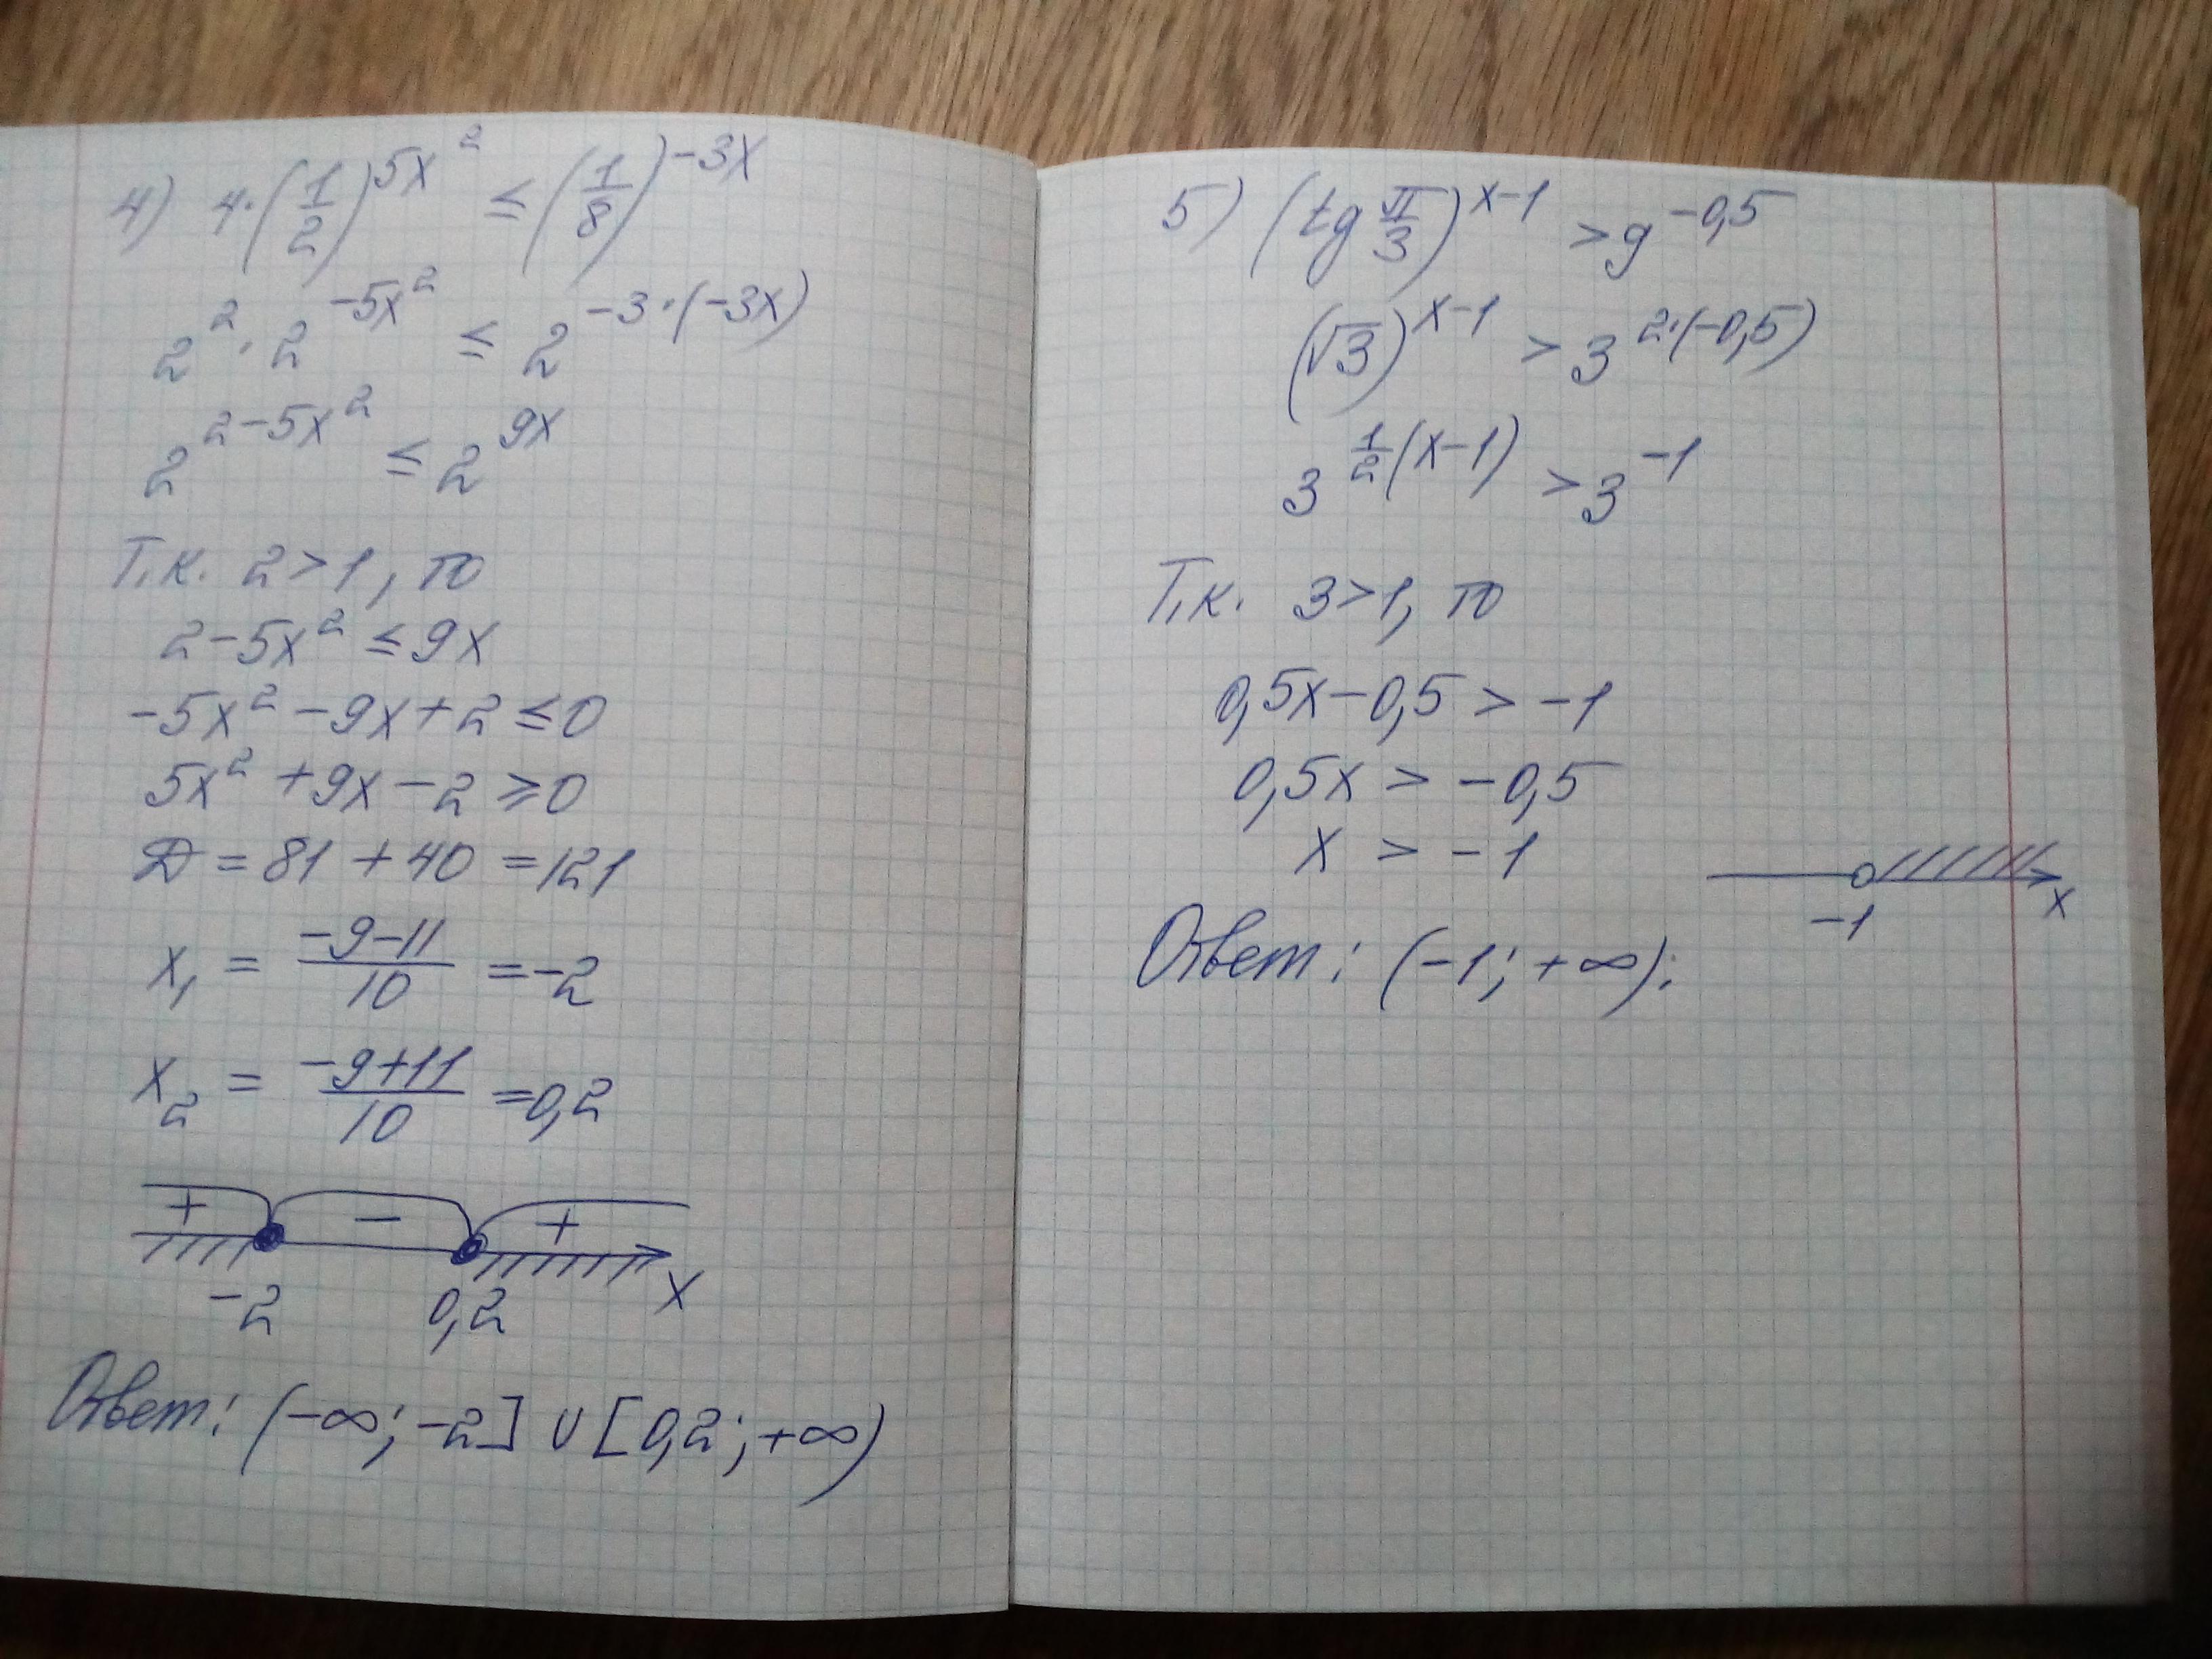 4) 4·(1/2)^5x² ≤ (1/8)^-3x
2²·2^-5x² ≤ 2^-3·(-3x)
2^2-5x² ≤ 2^9x
Т.к. 2>1, то
2-5x² ≤ 9x
-5x² -9x+2 ≤0
5x² +9x-2 ≥0
D = 81 + 40 = 121
x₁ = (-9-11)/10 = -2
x₂ = (-9+11)/10 = 0,2
+ - +
-2 0,2 x
Ответ: (-∞; -2] ∪ [0,2; +∞)
5) (tg π/3)^x-1 > 9^-0,5
(√3)^x-1 > 3^2·(-0,5)
3^1/2(x-1) > 3^-1
Т.к. 3>1, то
0,5x-0,5 > -1
0,5x > -0,5
x > -1
-1 x
Ответ: (-1; +∞).